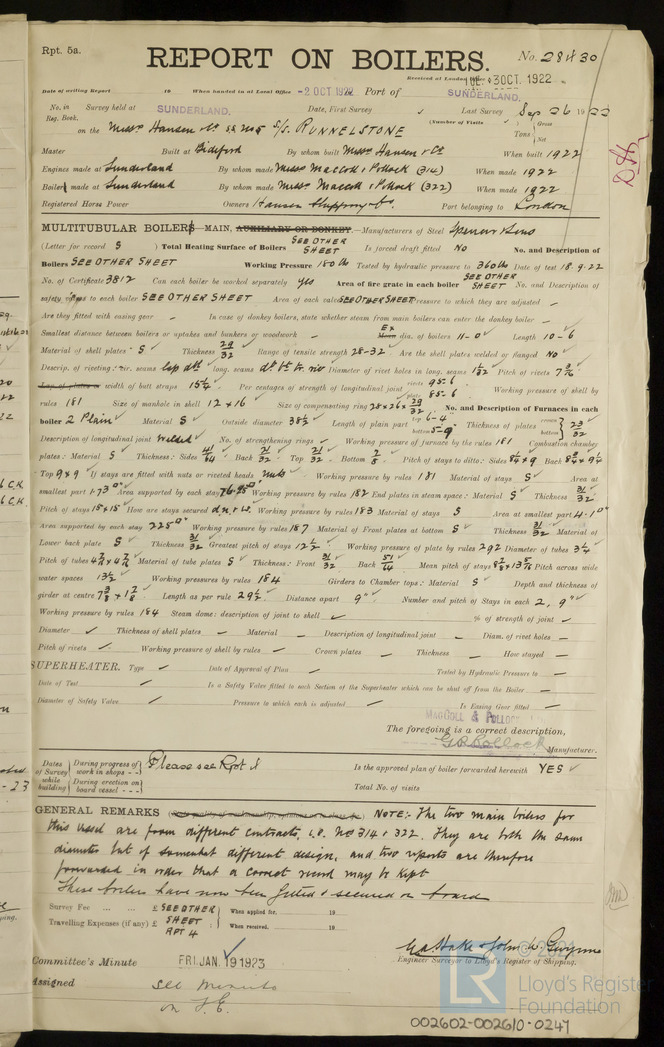 Rpt. 5a.
REPORT ON BOILERS.
No. 28430
Received at London Office TUE. 3 OCT. 1922
Date of writing Report 19 When handed in at Local Office -2 OCT 1922 Port of SUNDERLAND.
No. in Survey held at SUNDERLAND. Date, First Survey Last Survey Sep 26 1922
Reg. Book. (Number of Visits ) Gross
on the Messrs Hansen & Co S/S. RUNNELSTONE Tons Net
Master Built at Bideford By whom built Messrs Hansen & Co When built 1922
Engines made at Sunderland By whom made Messrs MacColl & Pollock (314) When made 1922
Boiler made at Sunderland By whom made Messrs MacColl & Pollock (322) When made 1922
Registered Horse Power Owners Hansen Shipping Co. Port belonging to London
MULTITUBULAR BOILERS MAIN, AUXILIARY OR DONKEY.—Manufacturers of Steel Spencer & Sons
(Letter for record S) Total Heating Surface of Boilers SEE OTHER SHEET Is forced draft fitted NO No. and Description of
Boilers SEE OTHER SHEET Working Pressure 180 lbs Tested by hydraulic pressure to 360 lbs Date of test 18.9.22
No. of Certificate 3812 Can each boiler be worked separately yes Area of fire grate in each boiler SEE OTHER SHEET No. and Description of
safety valves to each boiler SEE OTHER SHEET Area of each valve SEE OTHER SHEET Pressure to which they are adjusted –
Are they fitted with easing gear – In case of donkey boilers, state whether steam from main boilers can enter the donkey boiler –
Smallest distance between boilers or uptakes and bunkers or woodwork – Ex Mean dia. of boilers 11-0 Length 10-6
Material of shell plates S Thickness 29/32 Range of tensile strength 28-32 Are the shell plates welded or flanged NO
Descrip. of riveting: cir. seams lap dbl long. seams dbl bt. str. riv Diameter of rivet holes in long. seams 1 1/32 Pitch of rivets 7 3/16
Lap of plates or width of butt straps 15 1/4 Per centages of strength of longitudinal joint rivets 95.6 plate 85.6 Working pressure of shell by
rules 181 Size of manhole in shell 12 x 16 Size of compensating ring 28 x 26 x 29/32 No. and Description of Furnaces in each
boiler 2 Plain Material S Outside diameter 38 1/2 Length of plain part top 6-4 bottom 5-9 Thickness of plates crown bottom 23/32
Description of longitudinal joint welded No. of strengthening rings Working pressure of furnace by the rules 181 Combustion chamber
plates: Material S Thickness: Sides 41/64 Back 21/32 Top 21/32 Bottom 7/8 Pitch of stays to ditto: Sides 8 3/4 x 9 Back 8 3/4 x 9 1/4
Top 9 x 9 If stays are fitted with nuts or riveted heads nuts Working pressure by rules 181 Material of stays S Area at
smallest part 1.73" Area supported by each stay Working pressure by rules 182 End plates in steam space: Material S Thickness 31/32
Pitch of stays 15 x 15 How are stays secured d.n. & w. Working pressure by rules 183 Material of stays S Area at smallest part 4.10"
Area supported by each stay 225" Working pressure by rules 187 Material of Front plates at bottom S Thickness 31/32 Material of
Lower back plate S Thickness 31/32 Greatest pitch of stays 12 1/2 Working pressure of plate by rules 292 Diameter of tubes 3 1/4
Pitch of tubes Material of tube plates S Thickness: Front 31/32 Back 51/64 Mean pitch of stays Pitch across wide
water spaces 13 1/2 Working pressures by rules 184 Girders to Chamber tops: Material S Depth and thickness of
girder at centre 7 3/8 x 1 7/8 Length as per rule 29 1/2 Distance apart 9" Number and pitch of Stays in each 2, 9"
Working pressure by rules 184 Steam dome: description of joint to shell % of strength of joint –
Diameter Thickness of shell plates Material Description of longitudinal joint Diam. of rivet holes
Pitch of rivets Working pressure of shell by rules Crown plates Thickness How stayed
SUPERHEATER. Type Date of Approval of Plan Tested by Hydraulic Pressure to
Date of Test Is a Safety Valve fitted to each Section of the Superheater which can be shut off from the Boiler
Diameter of Safety Valve Pressure to which each is adjusted Is Easing Gear fitted
MACCOLL & POLLOCK
The foregoing is a correct description,
G.B. Pollock Manufacturer.
Dates of Survey while building During progress of work in shops - - Please see Rpt 4 Is the approved plan of boiler forwarded herewith YES
During erection on board vessel - - - Total No. of visits
GENERAL REMARKS NOTE:- The two main boilers for
this vessel are from different contracts, i.e. No 314 & 322. They are both the same
diameter but of somewhat different design, and two reports are therefore
forwarded in order that a correct record may be kept
These boilers have now been fitted & secured on board
Survey Fee ... ... £ SEE OTHER When applied for, 19
Travelling Expenses (if any) £ SHEET RPT 4 When received, 19
Engineer Surveyor to Lloyd's Register of Shipping.
Committee's Minute FRI. JAN. 19 1923
Assigned see minute
on F.E.
Lloyd's Register
Foundation
002602-002610-0247